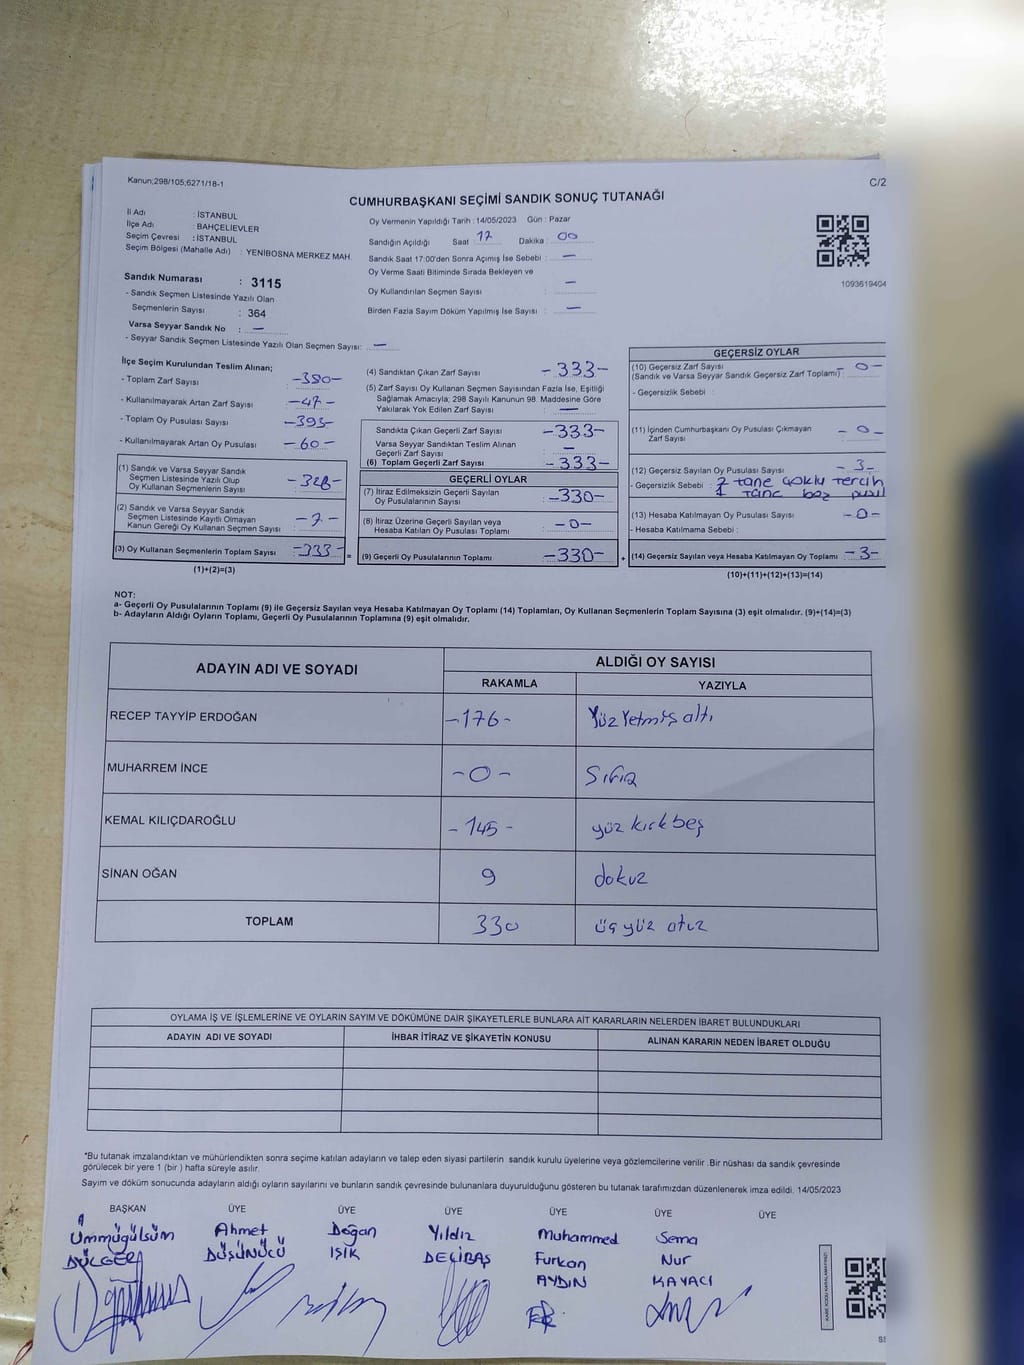 Kanun;298/105;6271/18-1
C/2
CUMHURBAŞKANI SEÇİMİ SANDIK SONUÇ TUTANAĞI
İl Adı : İSTANBUL
İlçe Adı : BAHÇELİEVLER
Seçim Çevresi : İSTANBUL
Seçim Bölgesi (Mahalle Adı) : YENİBOSNA MERKEZ MAH.
Sandık Numarası : 3115
- Sandık Seçmen Listesinde Yazılı Olan
Seçmenlerin Sayısı : 364
Varsa Seyyar Sandık No : —
- Seyyar Sandık Seçmen Listesinde Yazılı Olan Seçmen Sayısı: —
Oy Vermenin Yapıldığı Tarih : 14/05/2023 Gün : Pazar
Sandığın Açıldığı Saat : 17 Dakika : 00
Sandık Saat 17:00'den Sonra Açımış İse Sebebi : —
Oy Verme Saati Bitiminde Sırada Bekleyen ve
Oy Kullandırılan Seçmen Sayısı : —
Birden Fazla Sayım Döküm Yapılmış İse Sayısı : —
1093619404
İlçe Seçim Kurulundan Teslim Alınan;
- Toplam Zarf Sayısı : -380-
- Kullanılmayarak Artan Zarf Sayısı : -47-
- Toplam Oy Pusulası Sayısı : -393-
- Kullanılmayarak Artan Oy Pusulası : -60-
(1) Sandık ve Varsa Seyyar Sandık
Seçmen Listesinde Yazılı Olup
Oy Kullanan Seçmenlerin Sayısı : -326-
(2) Sandık ve Varsa Seyyar Sandık
Seçmen Listesinde Kayıtlı Olmayan
Kanun Gereği Oy Kullanan Seçmen Sayısı : -7-
(3) Oy Kullanan Seçmenlerin Toplam Sayısı : -333-
(1)+(2)=(3)
(4) Sandıktan Çıkan Zarf Sayısı : -333-
(5) Zarf Sayısı Oy Kullanan Seçmen Sayısından Fazla İse, Eşitliği
Sağlamak Amacıyla; 298 Sayılı Kanunun 98. Maddesine Göre
Yakılarak Yok Edilen Zarf Sayısı : —
Sandıkta Çıkan Geçerli Zarf Sayısı : -333-
Varsa Seyyar Sandıktan Teslim Alınan
Geçerli Zarf Sayısı : —
(6) Toplam Geçerli Zarf Sayısı : -333-
GEÇERLİ OYLAR
(7) İtiraz Edilmeksizin Geçerli Sayılan
Oy Pusulalarının Sayısı : -330-
(8) İtiraz Üzerine Geçerli Sayılan veya
Hesaba Katılan Oy Pusulası Toplamı : -0-
(9) Geçerli Oy Pusulalarının Toplamı : -330-
GEÇERSİZ OYLAR
(10) Geçersiz Zarf Sayısı
(Sandık ve Varsa Seyyar Sandık Geçersiz Zarf Toplamı) : -0-
- Geçersizlik Sebebi :
(11) İçinden Cumhurbaşkanı Oy Pusulası Çıkmayan
Zarf Sayısı : -0-
(12) Geçersiz Sayılan Oy Pusulası Sayısı : -3-
- Geçersizlik Sebebi : 2 tane çoklu tercih
1 tane boş pusul
(13) Hesaba Katılmayan Oy Pusulası Sayısı : -0-
- Hesaba Katılmama Sebebi :
(14) Geçersiz Sayılan veya Hesaba Katılmayan Oy Toplamı : -3-
(10)+(11)+(12)+(13)=(14)
NOT:
a- Geçerli Oy Pusulalarının Toplamı (9) ile Geçersiz Sayılan veya Hesaba Katılmayan Oy Toplamı (14) Toplamları, Oy Kullanan Seçmenlerin Toplam Sayısına (3) eşit olmalıdır. (9)+(14)=(3)
b- Adayların Aldığı Oyların Toplamı, Geçerli Oy Pusulalarının Toplamına (9) eşit olmalıdır.
ADAYIN ADI VE SOYADI
ALDIĞI OY SAYISI
RAKAMLA YAZIYLA
RECEP TAYYİP ERDOĞAN -176- Yüz Yetmiş altı
MUHARREM İNCE -0- Sıfır
KEMAL KILIÇDAROĞLU -145- yüz kırk beş
SİNAN OĞAN 9 dokuz
TOPLAM 330 üç yüz otuz
OYLAMA İŞ VE İŞLEMLERİNE VE OYLARIN SAYIM VE DÖKÜMÜNE DAİR ŞİKAYETLERLE BUNLARA AİT KARARLARIN NELERDEN İBARET BULUNDUKLARI
ADAYIN ADI VE SOYADI İHBAR İTİRAZ VE ŞİKAYETİN KONUSU ALINAN KARARIN NEDEN İBARET OLDUĞU
*Bu tutanak imzalandıktan ve mühürlendikten sonra seçime katılan adayların ve talep eden siyasi partilerin sandık kurulu üyelerine veya gözlemcilerine verilir .Bir nüshası da sandık çevresinde
görülecek bir yere 1 (bir ) hafta süreyle asılır.
Sayım ve döküm sonucunda adayların aldığı oyların sayılarını ve bunların sandık çevresinde bulunanlara duyurulduğunu gösteren bu tutanak tarafımızdan düzenlenerek imza edildi. 14/05/2023
BAŞKAN ÜYE ÜYE ÜYE ÜYE ÜYE ÜYE
Ümmügülsüm Ahmet Doğan Yıldız Muhammed Sema
DÜLGER DÜŞÜNÜCÜ IŞIK DELİBAŞ Furkan Nur
AYDIN KAYACI